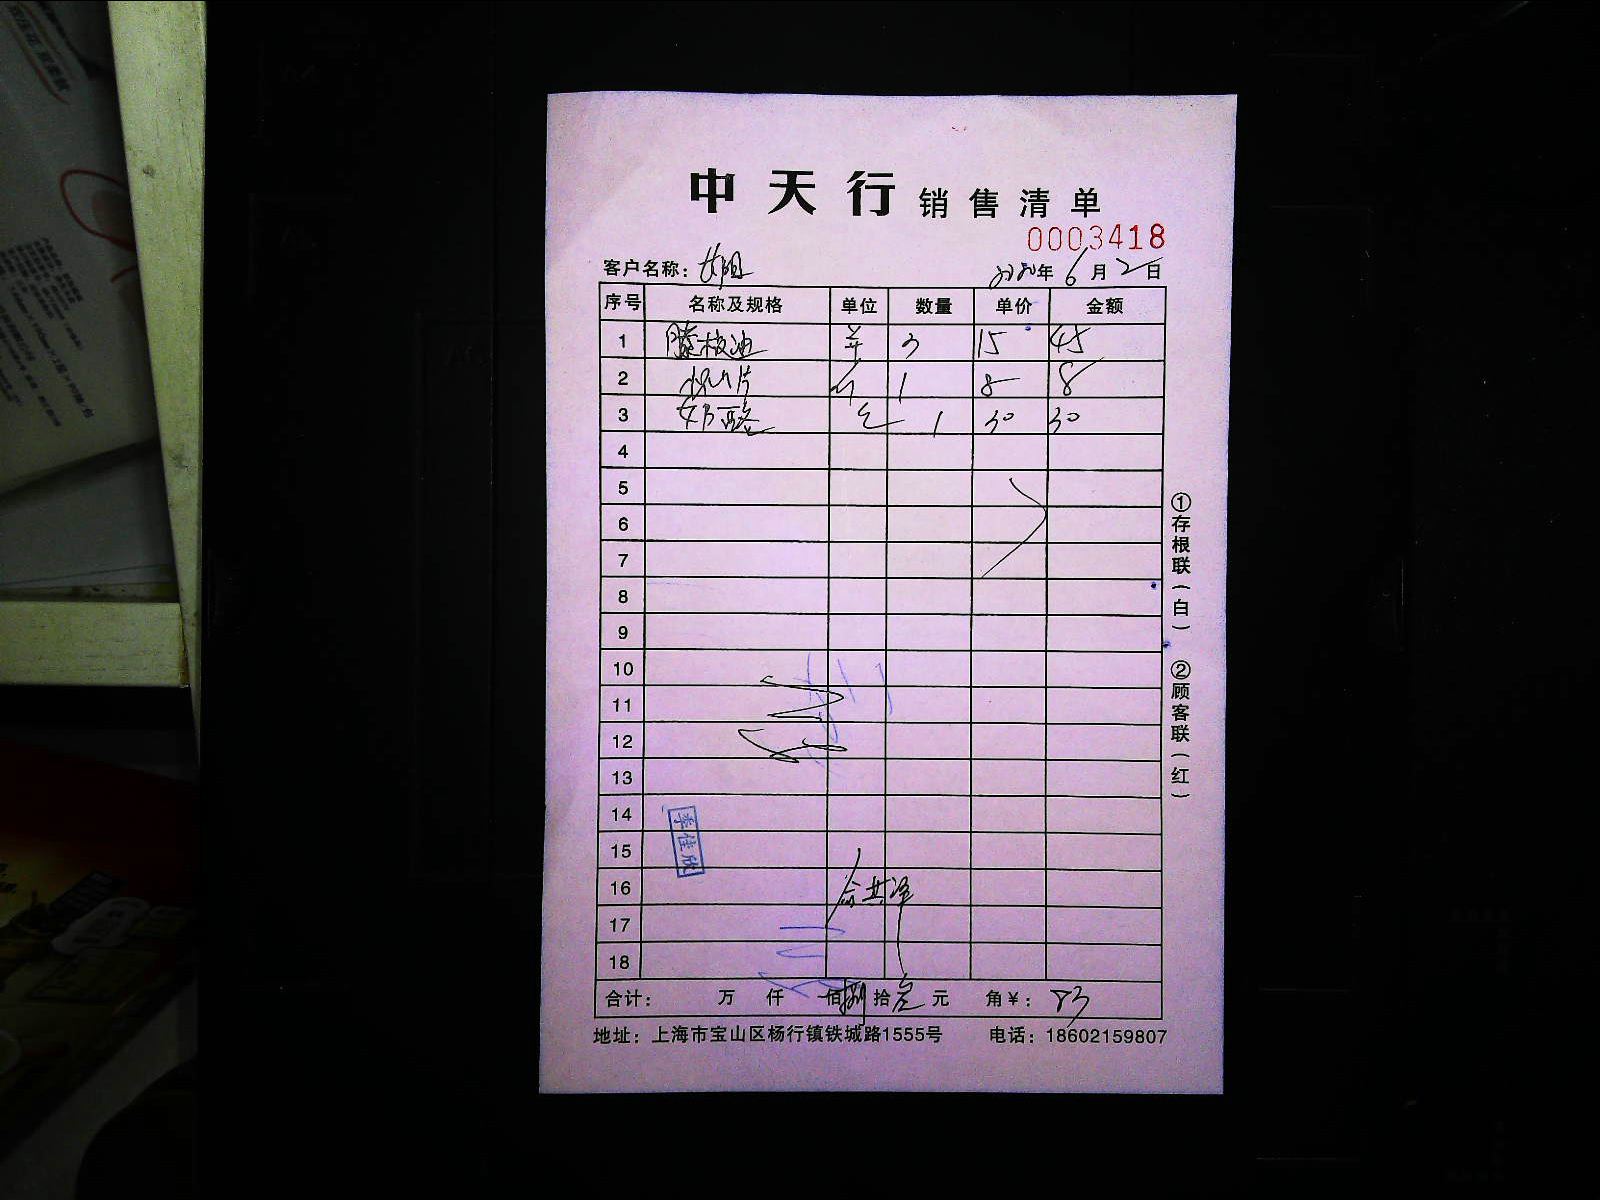 中天行 销售清单
0003418
客户名称：
2020年6月2日
序号 名称及规格 单位 数量 单价 金额
1 藤椒油 3 15 45
2 1 8 8
3 奶酪 1 30 30
4
5
6
7
8
9
10
11
12
13
14
15
16
17
18
李佳欣
合计： 万 仟 佰捌拾叁元 角￥：83
地址：上海市宝山区杨行镇铁城路1555号 电话：18602159807
①存根联（白） ②顾客联（红）